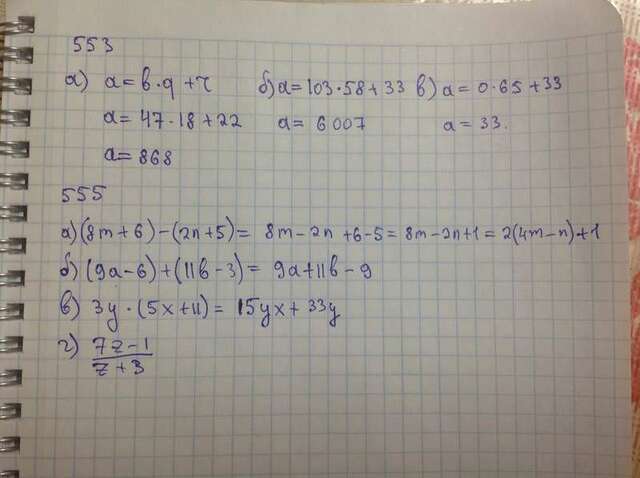 553
а) a = b·q + r б) a = 103·58 + 33 в) a = 0·65 + 33
a = 47·18 + 22 a = 6007 a = 33.
a = 868
555
а) (8m + 6) – (2n + 5) = 8m – 2n + 6 – 5 = 8m – 2n + 1 = 2(4m – n) + 1
б) (9a – 6) + (11b – 3) = 9a + 11b – 9
в) 3y · (5x + 11) = 15yx + 33y
г) 7z – 1
z + 3